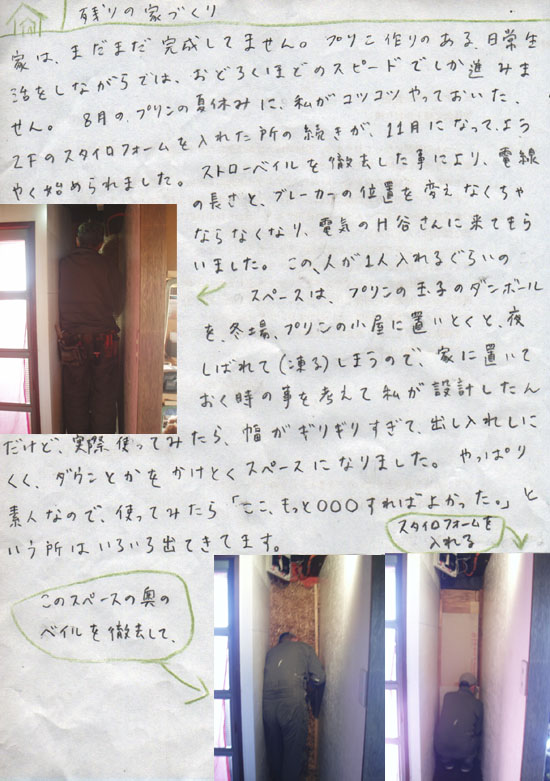 残りの家づくり
家は、まだまだ完成してません。プリン作りのある、日常生
活をしながらでは、おどろくほどのスピードでしか進みま
せん。 8月の、プリンの夏休みに、私がコツコツやっておいた、
2Fのスタイロフォームを入れた所の続きが、11月になって、よう
やく始められました。 ストローベイルを徹去した事により、電線
の長さと、ブレーカーの位置を変えなくちゃ
ならなくなり、電気のH谷さんに来てもら
いました。この、人が1人入れるぐらいの
スペースは、プリンの玉子のダンボール
を、冬場、プリンの小屋に置いとくと、夜
しばれて(凍る)しまうので、家に置いて
おく時の事を考えて私が設計したん
だけど、実際使ってみたら、幅がギリギリすぎて、出し入れしに
くく、ダウンとかをかけとくスペースになりました。 やっぱり
素人なので、使ってみたら「ここ、もっと〇〇〇すればよかった。」と
いう所はいろいろ出てきてます。
スタイロフォームを
入れる
このスペースの奥の
ベイルを徹去して、